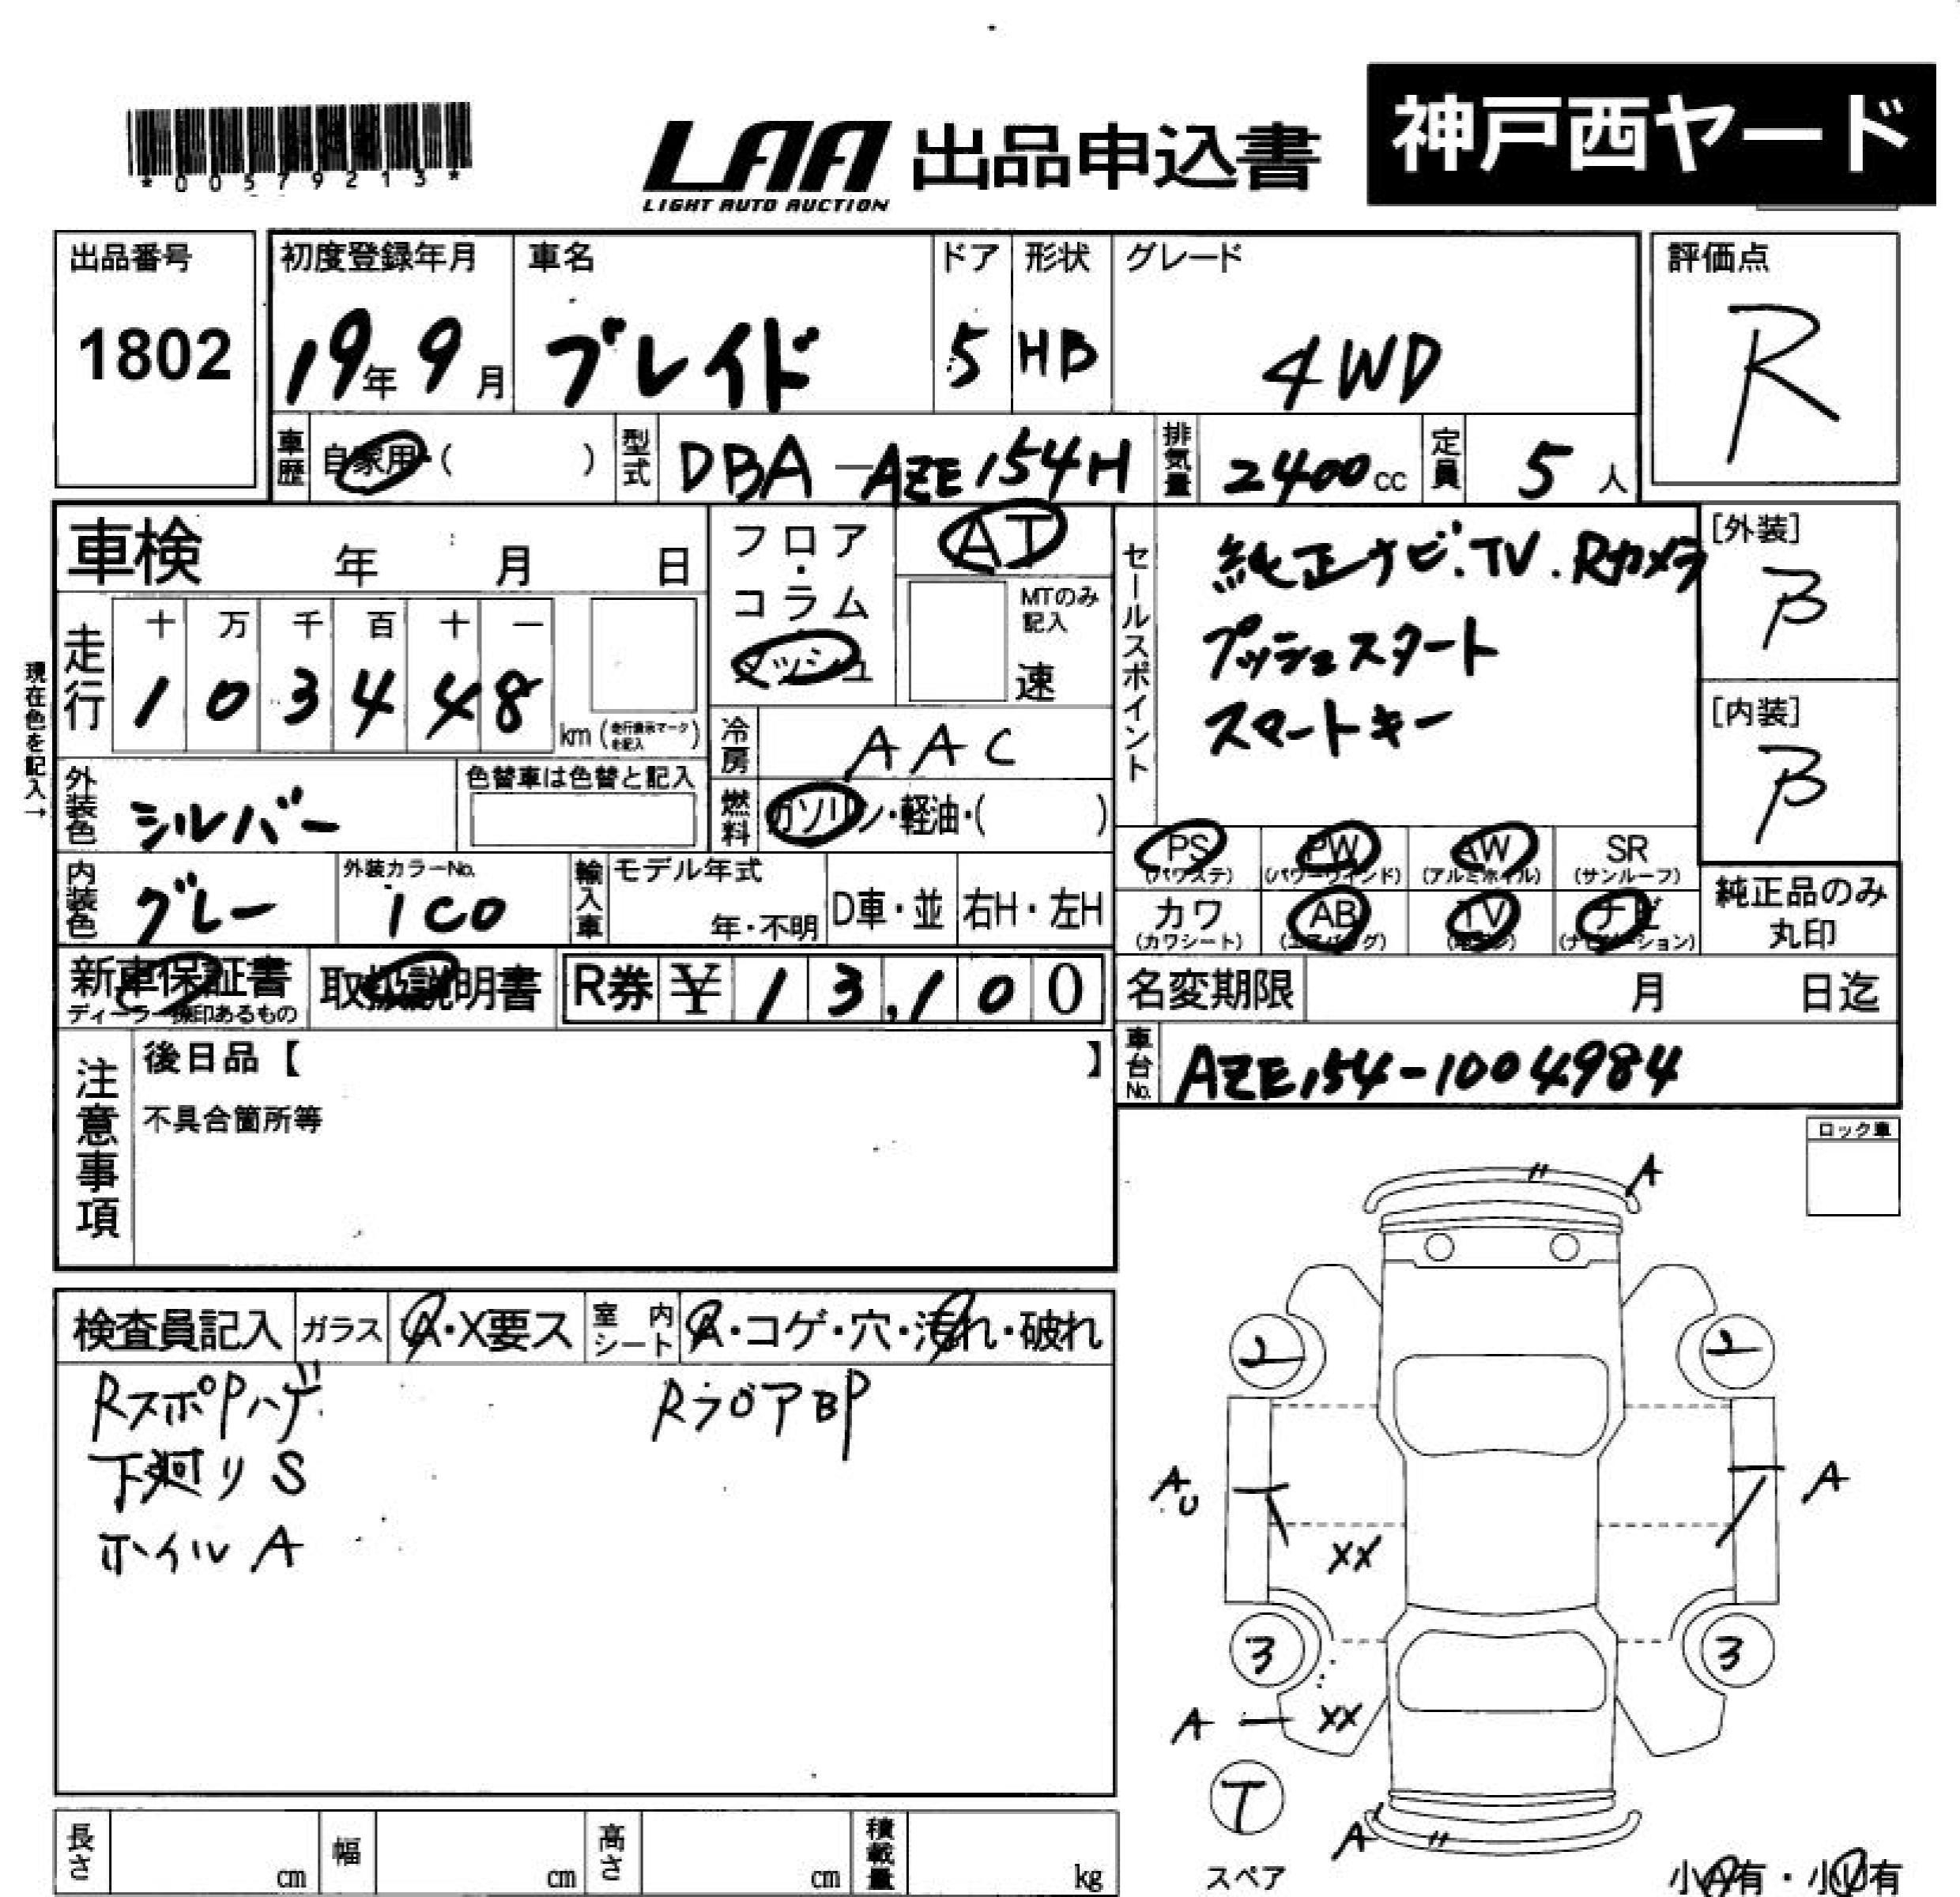 *00579213*
LAA 出品申込書 神戸西ヤード
LIGHT AUTO AUCTION
出品番号 初度登録年月 車名 ドア 形状 グレード 評価点
1802 19年9月 ブレイド 5 HB 4WD R
車歴 自家用・( ) 型式 DBA-AZE154H 排気量 2400cc 定員 5人
車検 年 月 日 フロア・コラム マッシュ AT
MTのみ記入 速
セールスポイント 純正ナビ.TV.Rカメラ
プッシュスタート
スマートキー
[外装] B
[内装] B
現在色を記入→
走行 十 万 千 百 十 一
1 0 3 4 4 8 km(走行表示マークを記入)
冷房 AAC
外装色 シルバー 色替車は色替と記入
燃料 ガソリン・軽油・( )
PS (パワステ) PW (パワーウインド) AW (アルミホイル) SR (サンルーフ)
カワ (カワシート) AB (エアバッグ) TV (テレビ) ナビ (ナビゲーション)
純正品のみ丸印
内装色 グレー 外装カラーNo. 1C0 輸入車 モデル年式 年・不明 D車・並 右H・左H
新車保証書 ディーラー捺印あるもの 取扱説明書 R券 ¥13,100
名変期限 月 日迄
車台No. AZE154-1004984
注意事項 後日品【 】
不具合箇所等
ロック車
検査員記入 ガラス A・X要ス 室内シート A・コゲ・穴・汚れ・破れ
RスポPハゲ RフロアBP
下廻りS
ホイルA
A
2 2
AU A
XX
3 3
A XX
T
A
スペア
小A有・小U有
長さ cm 幅 cm 高さ cm 積載量 kg